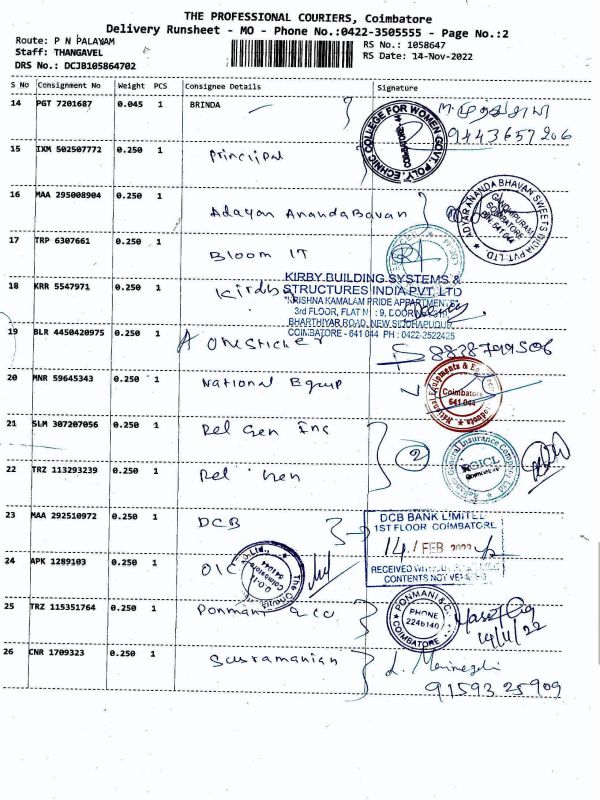 THE PROFESSIONAL COURIERS, Coimbatore
Delivery Runsheet - MO - Phone No.:0422-3505555 - Page No.:2
Route: P N PALAYAM
RS No.: 1058647
Staff: THANGAVEL
RS Date: 14-Nov-2022
DRS No.: DCJB105864702
S No Consignment No Weight PCS Consignee Details Signature
14 PGT 7201687 0.045 1 BRINDA
9143657206
COLLEGE FOR WOMEN GOVT. POLY COIMBATORE
15 IXM 502507772 0.250 1 Principal
16 MAA 295008904 0.250 1 Adayan AnandaBavan
ADYAR ANANDA BHAVAN SWEETS INDIA PVT. LTD GANDHIPURAM COIMBATORE 641 044
17 TRP 6307661 0.250 1 Bloom IT
18 KRR 5547971 0.250 1 Kirdby
KIRBY BUILDING SYSTEMS &
STRUCTURES INDIA PVT. LTD
"KRISHNA KAMALAM PRIDE APPARTMENTS"
3rd FLOOR, FLAT N : 9, DOOR
BHARTHIYAR ROAD, NEW SIDDHAPUDUR,
COIMBATORE - 641 044 PH : 0422-2522425
19 BLR 4450420975 0.250 1 A one sticker
8838799506
20 MNR 59645343 0.250 1 National Equp
National Equipments & Coimbatore 641 044
21 SLM 307207056 0.250 1 Rel Gen Inc
2
22 TRZ 113293239 0.250 1 Rel Gen
General Insurance Company Ltd RGICL
23 MAA 292510972 0.250 1 DCB
DCB BANK LIMITED
1ST FLOOR COIMBATORE
14 / FEB 2022
RECEIVED
CONTENTS NOT VERIFIED
24 APK 1289103 0.250 1 OIC
Coimbatore 641044
25 TRZ 115351764 0.250 1 Ponmani & Co
PONMANI & C. PHONE 2246140 COIMBATORE
14/11/22
26 CNR 1709323 0.250 1 Susramanian
91593 25909